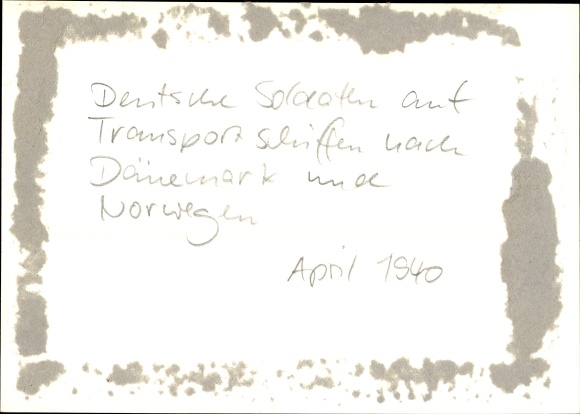 Deutsche Soldaten auf
Transportschiffen nach
Dänemark und
Norwegen
April 1940